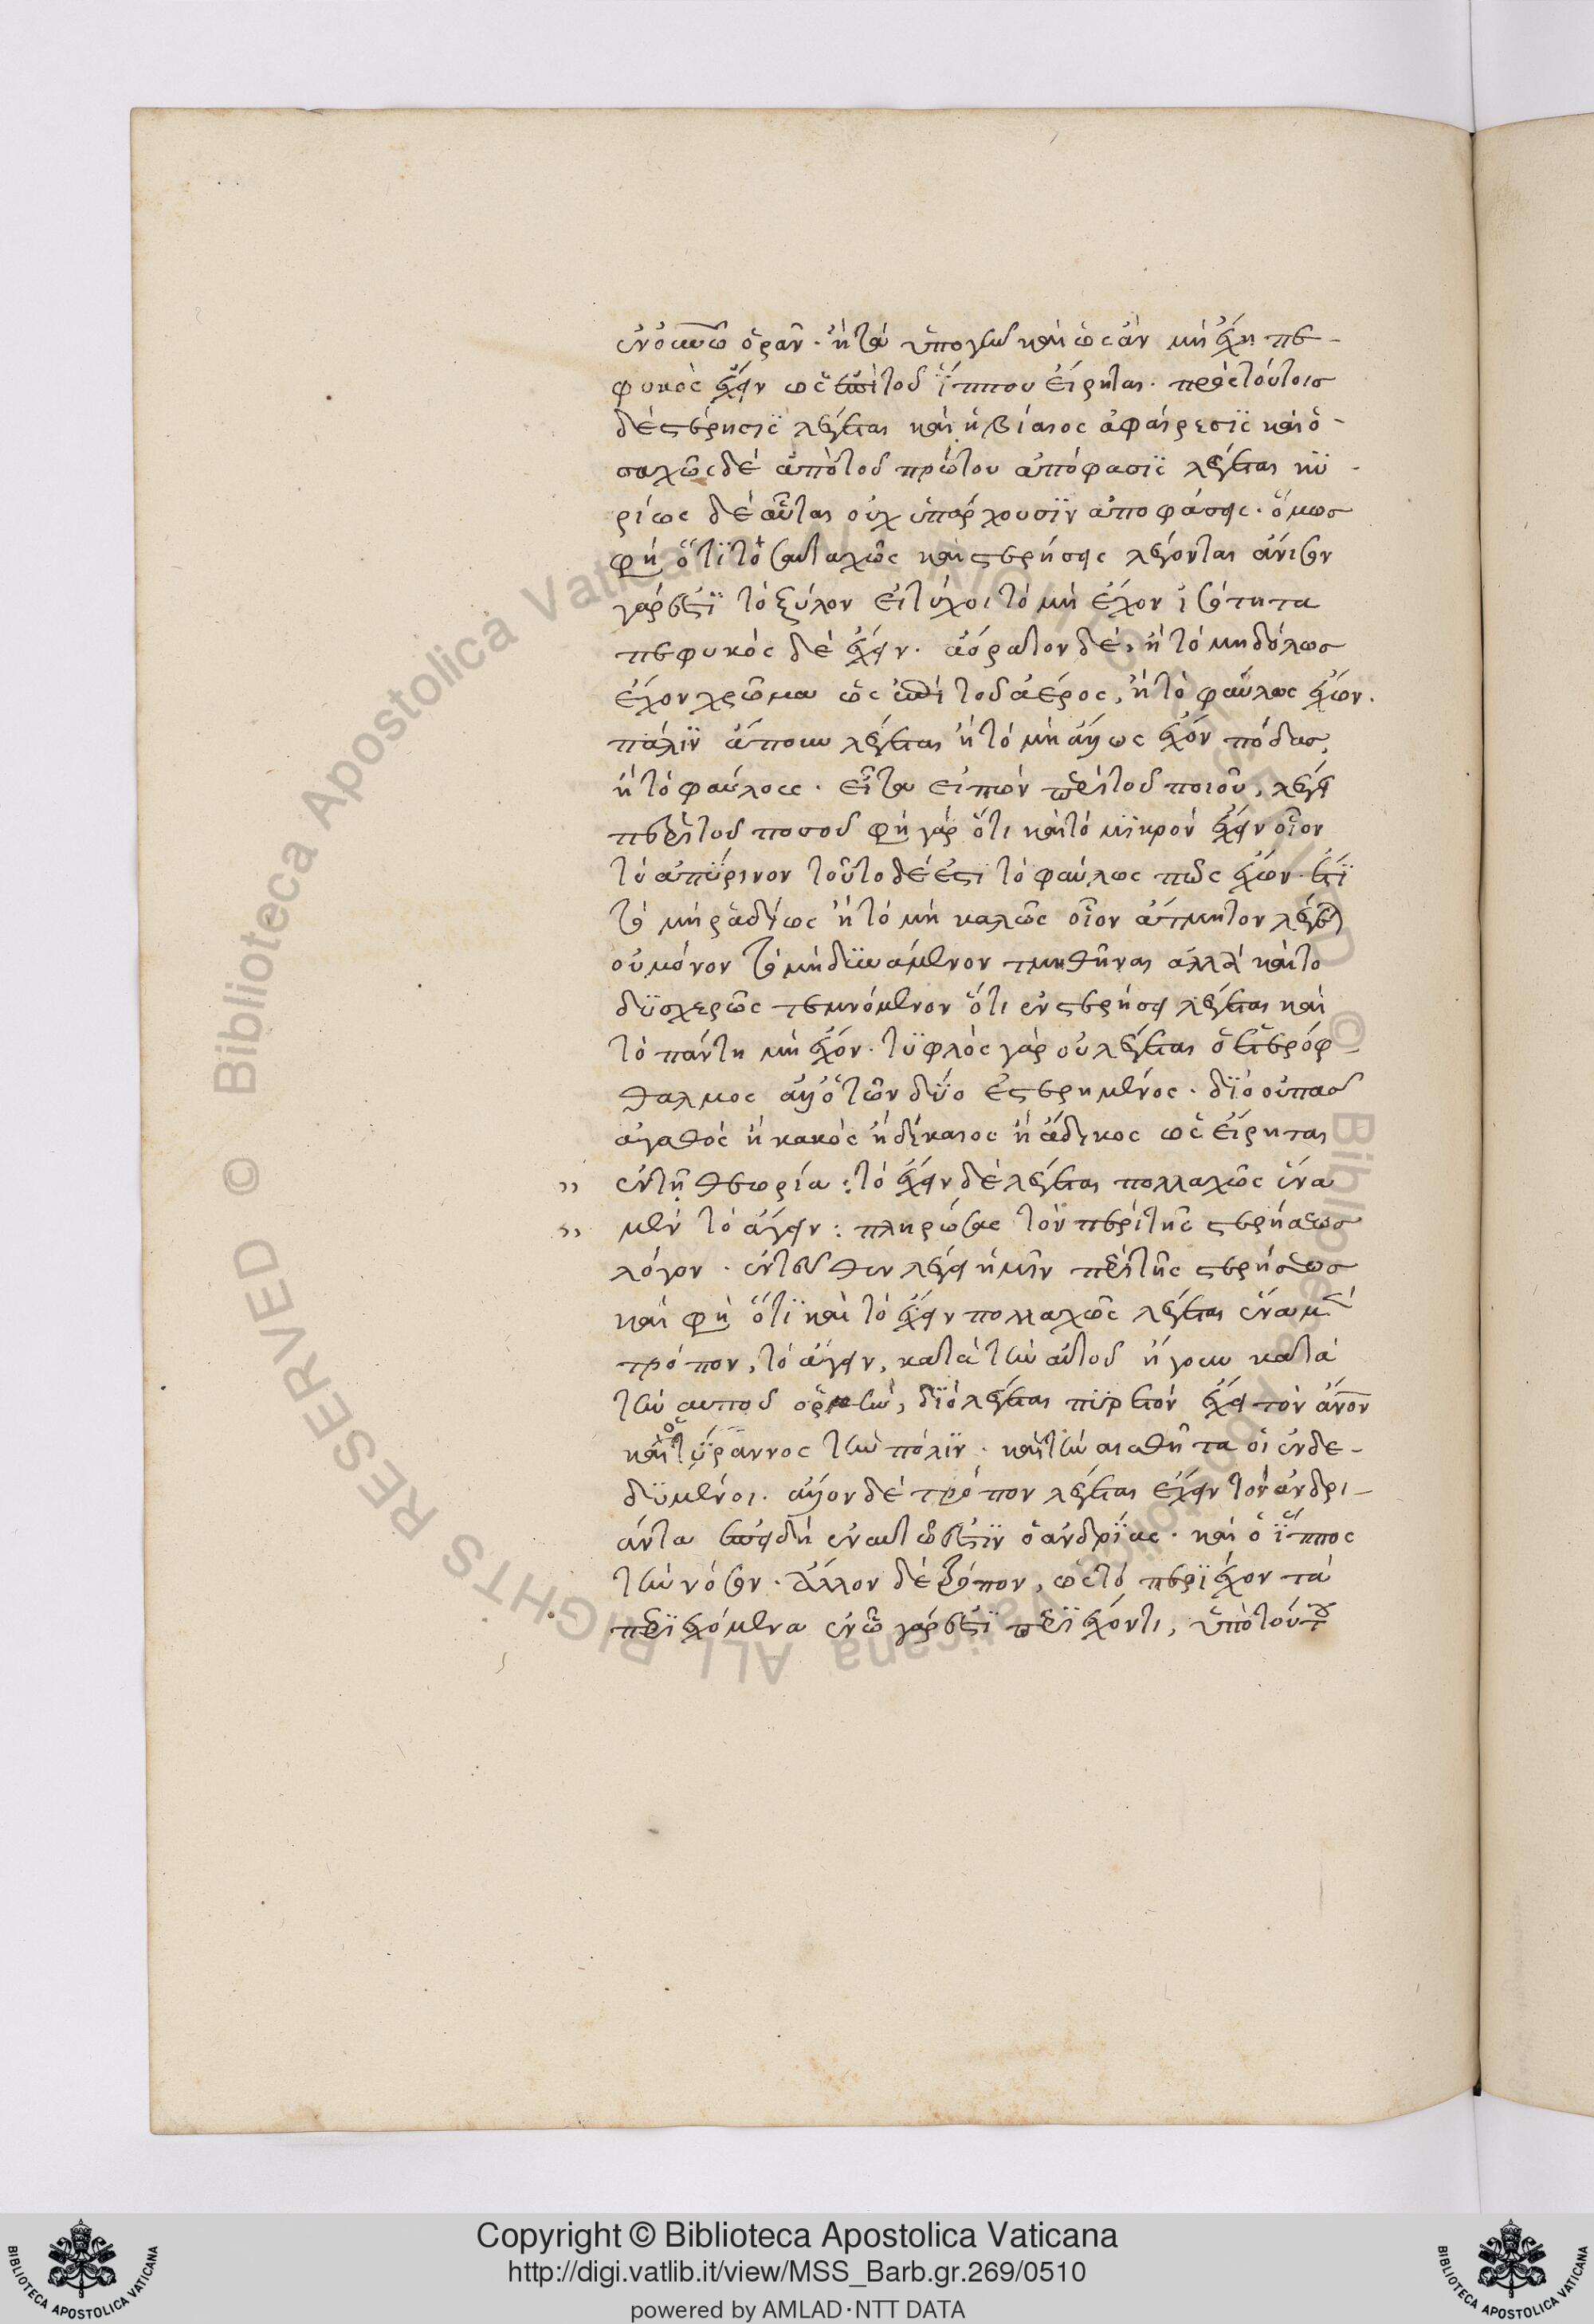 ἐν ὁμοίω ὁρᾶν· ἢ τὰ ὑπόγυα καὶ ὡς ἂν μὴ ἔχη πε-
φυκὸς ἔχειν ὡς ἐπὶ τοῦ ἵππου εἴρηται. πρὸς τούτοις
δὲ στέρησις λέγεται καὶ ἡ βίαιος ἀφαίρεσις καὶ ὁ-
σαχῶς δὲ ἀπὸ τοῦ πρώτου ἀπόφασις λέγεται κυ-
ρίως δὲ αὗται οὐχ ὑπάρχουσιν ἀποφάσεις· ὅμως
φὴ ὅτι τοσαυταχῶς καὶ στερήσεις λέγονται ἄνισον
γάρ ἐστι τὸ ξύλον εἰ τύχοι τὸ μὴ ἔχον ἰσότητα
πεφυκὸς δὲ ἔχειν. ἀόρατον δὲ, ἢ τὸ μηδόλως
ἔχον χρῶμα ὡς ἐπὶ τοῦ ἀέρος, ἢ τὸ φαῦλως ἔχον.
πάλιν ἄπουν λέγεται ἢ τὸ μὴ ἄλλως ἔχον πόδας,
ἢ τὸ φαύλους. εἶτα εἰπὼν περὶ τοῦ ποιοῦ, λέγει
περὶ τοῦ ποσοῦ φὴ γὰρ ὅτι καὶ τὸ μικρὸν ἔχειν οἷον
τὸ ἀπύρινον τοῦτο δέ ἐστι τὸ φαύλως πῶς ἔχον. ἔτι
τὸ μὴ ῥαδίως ἢ τὸ μὴ καλῶς οἷον ἄτμητον λέγεται
οὐ μόνον τὸ μὴ δυνάμενον τμηθῆναι ἀλλὰ καὶ το
δυσχερῶς τεμνόμενον ὅτι ἐν στερήσει λέγεται καὶ
τὸ πάντη μὴ ἔχον. τυφλὸς γὰρ οὐ λέγεται ὁ ἑτερόφ-
θαλμος ἀλλ' ὁ τῶν δύο ἐστερημένος. διὸ οὐ πᾶς
ἀγαθὸς ἢ κακὸς ἢ δίκαιος ἢ ἄδικος ὡς εἴρηται
" ἐν τῆ θεωρία: τὸ ἔχειν δὲ λέγεται πολλαχῶς ἕνα
" μὲν τὸ ἄγειν: πληρώσας τὸν περὶ τῆς στερήσεως
λόγον. ἐντεῦθεν λέγει ἡμῖν περὶ τῆς στερήσεως
καὶ φὴ ὅτι καὶ τὸ ἔχειν πολλαχῶς λέγεται ἕνα μὲν
τρόπον, τὸ ἄγειν, κατὰ τὴν αὑτοῦ ἤγουν κατὰ
τὴν αυτοῦ ὁρμὴν, διὸ λέγεται πυρετὸν ἔχει τὸν ἄνον
καὶ ὁ τύραννος τὴν πόλιν. καὶ τὴν αισθῆτα οἱ ἐνδε-
δυμένοι. ἄλλον δὲ τρόπον λέγεται ἔχειν τὸν ἀνδρι-
άντα ἐπειδὴ ἐν αυτῶ ἐστὶν ὁ ἀνδρίας. καὶ ὁ ἵππος
τὴν νόσον. ἄλλον δὲ τρόπον, ὡς τὸ περιέχον τὰ
περιεχόμενα ἐν ᾧ γάρ ἐστι περιέχοντι, ὑπὸ τούτου